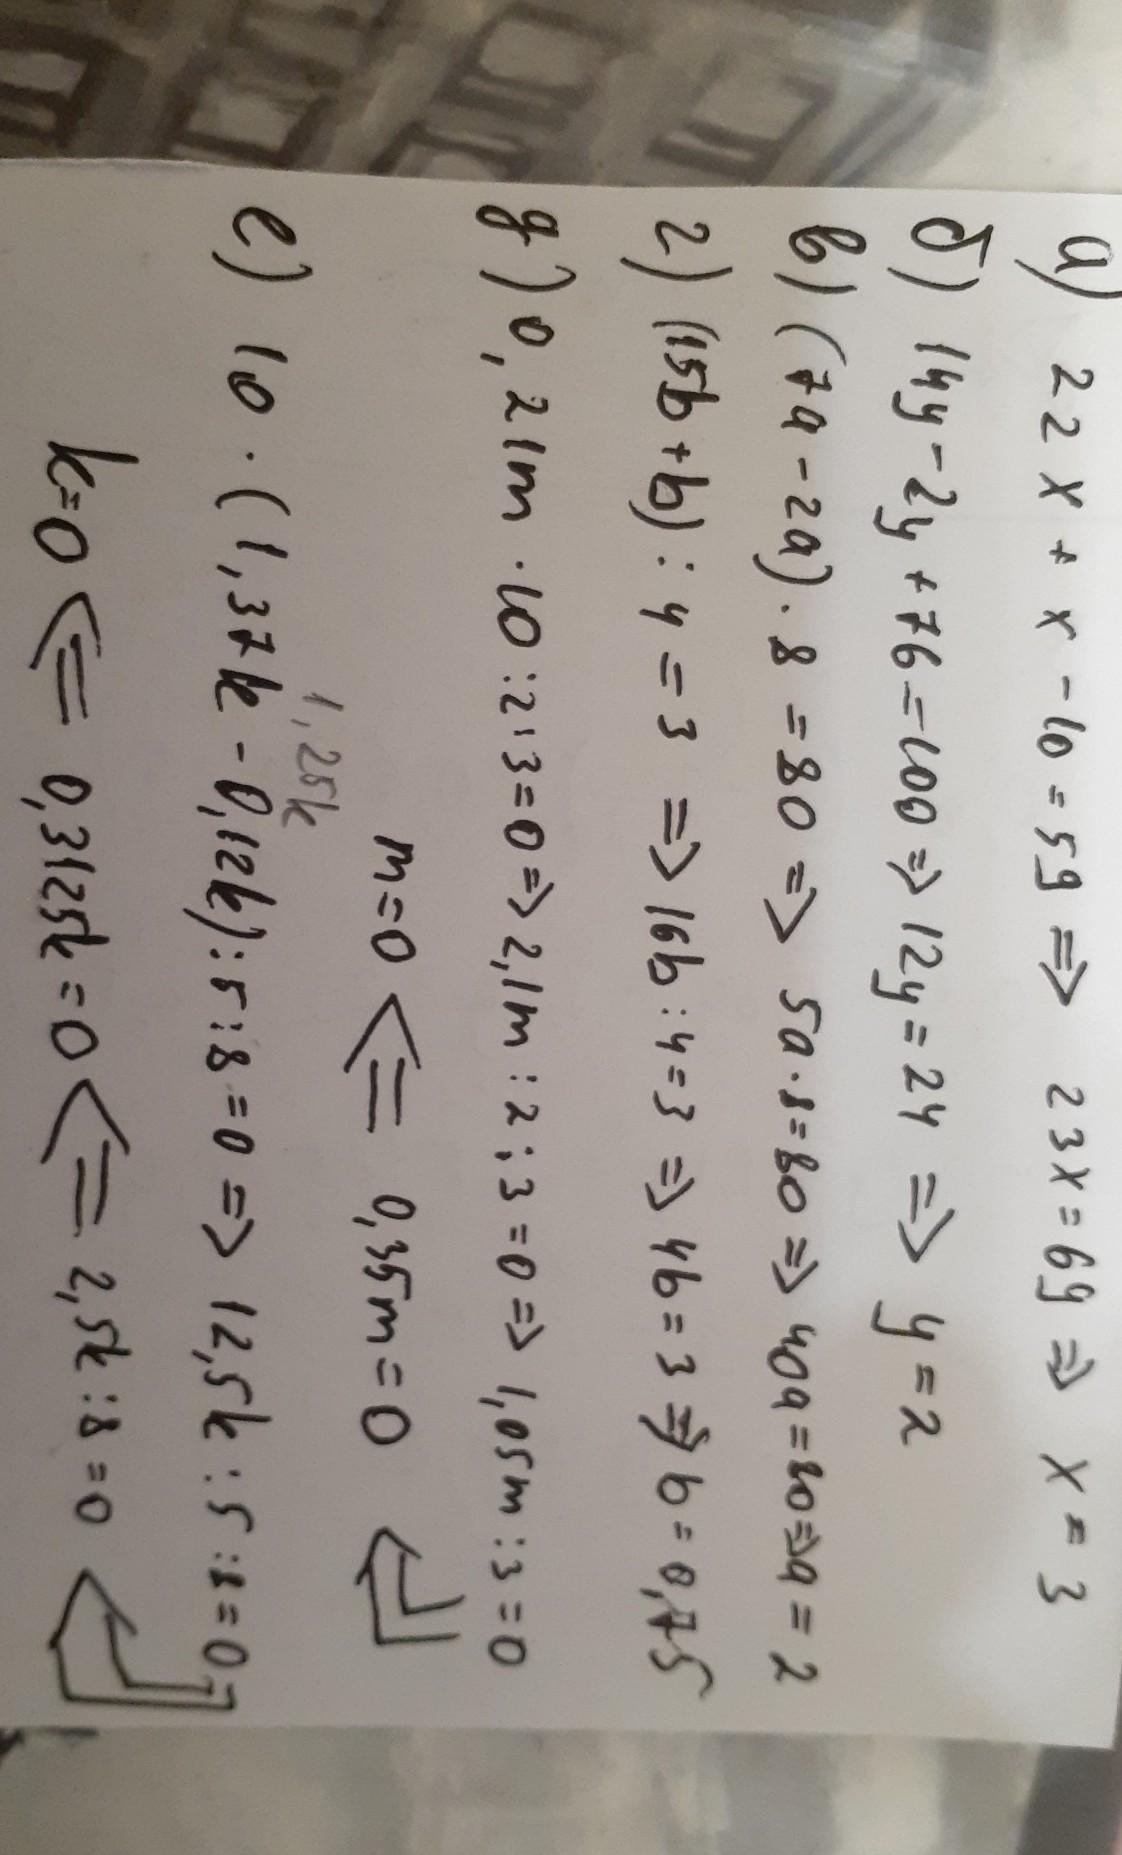 а) 22x + x - 10 = 59 => 23x = 69 => x = 3
б) 14y - 2y + 76 = 100 => 12y = 24 => y = 2
в) (7a - 2a) · 8 = 80 => 5a · 8 = 80 => 40a = 80 => a = 2
г) (15b + b) : 4 = 3 => 16b : 4 = 3 => 4b = 3 => b = 0,75
д) 0,21m · 10 : 2 : 3 = 0 => 2,1m : 2 : 3 = 0 => 1,05m : 3 = 0
m = 0 <= 0,35m = 0 <=
1,25k
е) 10 · (1,37k - 0,12k) : 5 : 8 = 0 => 12,5k : 5 : 8 = 0
k = 0 <= 0,3125k = 0 <= 2,5k : 8 = 0 <=